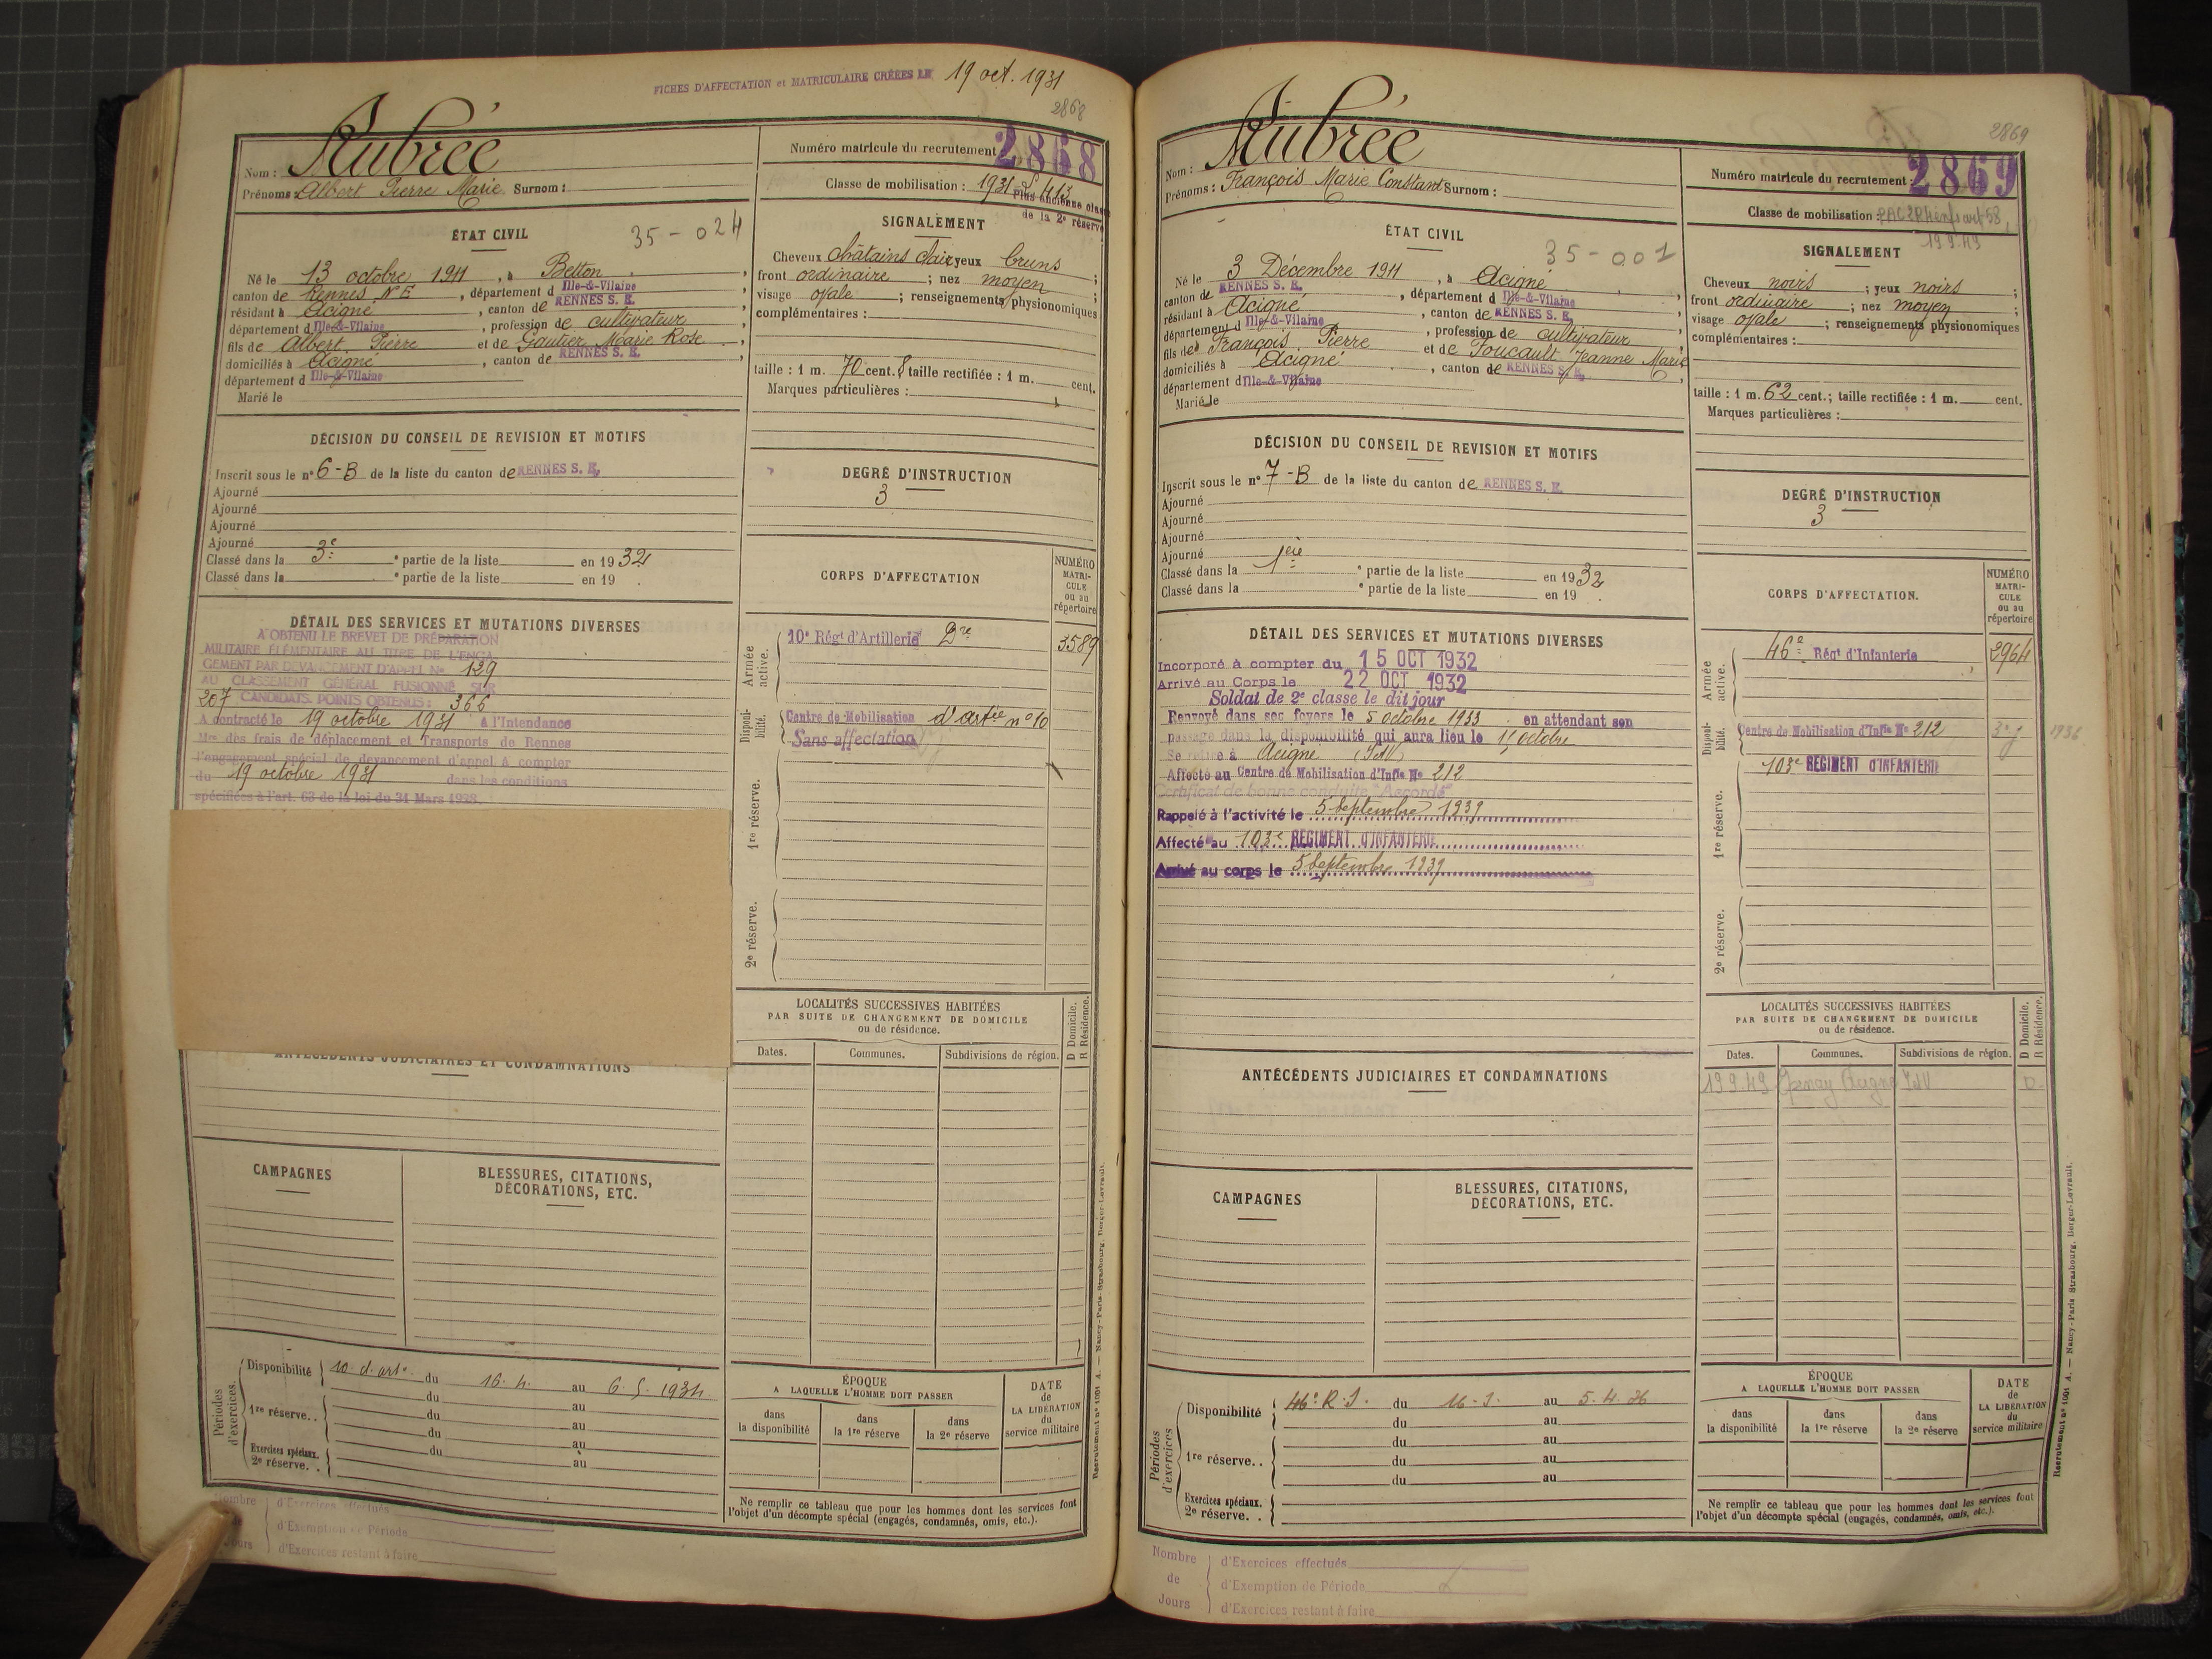 FICHES D'AFFECTATION et MATRICULAIRE CRÉÉES LE 19 oct. 1931
2868
Nom : Aubrée
Prénoms : Albert Pierre Marie Surnom :
Numéro matricule du recrutement 2868
Classe de mobilisation : 1931
Plus ancienne classe
de la 2e réserve
ÉTAT CIVIL
35-024
Né le 13 octobre 1911, à Betton,
canton de Rennes N E, département d Ille-&-Vilaine
résidant à Acigné, canton de RENNES S. E.
département d Ille-&-Vilaine, profession de cultivateur
fils de Albert Pierre et de Gautier Marie Rose,
domiciliés à Acigné, canton de RENNES S. E.
département d Ille-&-Vilaine
Marié le
SIGNALEMENT
Cheveux châtains clair yeux bruns ;
front ordinaire ; nez moyen ;
visage ovale ; renseignements physionomiques
complémentaires :
taille : 1 m. 70 cent. ; taille rectifiée : 1 m. cent.
Marques particulières :
DÉCISION DU CONSEIL DE REVISION ET MOTIFS
Inscrit sous le n° 6-B de la liste du canton de RENNES S. E.
Ajourné
Ajourné
Ajourné
Ajourné
Classé dans la 3e ° partie de la liste en 1932
Classé dans la ° partie de la liste en 19 .
DEGRÉ D'INSTRUCTION
3
DÉTAIL DES SERVICES ET MUTATIONS DIVERSES
A OBTENU LE BREVET DE PRÉPARATION
MILITAIRE ÉLÉMENTAIRE AU TITRE DE L'ENGA-
GEMENT PAR DEVANCEMENT D'APPEL No 139
AU CLASSEMENT GÉNÉRAL FUSIONNÉ SUR
207 CANDIDATS. POINTS OBTENUS : 366
A contracté le 19 octobre 1931 à l'Intendance
Mre des frais de déplacement et Transports de Rennes
l'engagement spécial de devancement d'appel à compter
du 19 octobre 1931 dans les conditions
spécifiées à l'art. 63 de la loi du 31 Mars 1928.
CORPS D'AFFECTATION
NUMÉRO
MATRI-
CULE
ou au
répertoire
Armée active.
10e Régt d'Artillerie Dre 3589
Disponibilité.
Centre de Mobilisation d'artie n° 10
Sans affectation
1re réserve.
2e réserve.
LOCALITÉS SUCCESSIVES HABITÉES
PAR SUITE DE CHANGEMENT DE DOMICILE
ou de résidence.
D Domicile.
R Résidence.
Dates. Communes. Subdivisions de région.
ANTÉCÉDENTS JUDICIAIRES ET CONDAMNATIONS
CAMPAGNES
BLESSURES, CITATIONS,
DÉCORATIONS, ETC.
Périodes d'exercices.
Disponibilité 10. d. arte. du 16. 4. au 6. 5. 1934
du au
1re réserve. . du au
du au
Exercices spéciaux. du au
2e réserve. . au
ÉPOQUE
A LAQUELLE L'HOMME DOIT PASSER
dans
la disponibilité
dans
la 1re réserve
dans
la 2e réserve
DATE
de
LA LIBÉRATION
du
service militaire
Ne remplir ce tableau que pour les hommes dont les services font
l'objet d'un décompte spécial (engagés, condamnés, omis, etc.).
Nombre
Jours
d'Exercices effectués
d'Exemption de Période
d'Exercices restant à faire
Recrutement n° 1001 A. — Nancy-Paris-Strasbourg, Berger-Levrault.
2869
Nom : Aubrée
Prénoms : François Marie Constant Surnom :
Numéro matricule du recrutement 2869
Classe de mobilisation :
19 9 49
ÉTAT CIVIL
35-001
Né le 3 Décembre 1911, à Acigné
canton de RENNES S. E., département d Ille-&-Vilaine
résidant à Acigné, canton de RENNES S. E.
département d Ille-&-Vilaine, profession de cultivateur
fils de François Pierre et de Foucault Jeanne Marie
domiciliés à Acigné, canton de RENNES S. E.
département d Ille-&-Vilaine
Marié le
SIGNALEMENT
Cheveux noirs ; yeux noirs ;
front ordinaire ; nez moyen ;
visage ovale ; renseignements physionomiques
complémentaires :
taille : 1 m. 62 cent. ; taille rectifiée : 1 m. cent.
Marques particulières :
DÉCISION DU CONSEIL DE REVISION ET MOTIFS
Inscrit sous le n° 7-B de la liste du canton de RENNES S. E.
Ajourné
Ajourné
Ajourné
Ajourné
Classé dans la 1ère ° partie de la liste en 1932
Classé dans la ° partie de la liste en 19 .
DEGRÉ D'INSTRUCTION
3
DÉTAIL DES SERVICES ET MUTATIONS DIVERSES
Incorporé à compter du 15 OCT 1932
Arrivé au Corps le 22 OCT 1932
Soldat de 2e classe le dit jour
Renvoyé dans ses foyers le 5 octobre 1933 en attendant son
passage dans la disponibilité qui aura lieu le 15 octobre
Se retire à Acigné (I&V)
Affecté au Centre de Mobilisation d'Infie No 212
Certificat de bonne conduite "Accordé"
Rappelé à l'activité le 5 Septembre 1939
Affecté au 103e REGIMENT D'INFANTERIE
Arrivé au corps le 5 Septembre 1939
CORPS D'AFFECTATION.
NUMÉRO
MATRI-
CULE
ou au
répertoire
Armée active.
46e Régt d'Infanterie 2964
Disponibilité.
Centre de Mobilisation d'Infie No 212
1936
103e REGIMENT D'INFANTERIE
1re réserve.
2e réserve.
LOCALITÉS SUCCESSIVES HABITÉES
PAR SUITE DE CHANGEMENT DE DOMICILE
ou de résidence.
D Domicile.
R Résidence.
Dates. Communes. Subdivisions de région.
19 9.49 I&V D
ANTÉCÉDENTS JUDICIAIRES ET CONDAMNATIONS
CAMPAGNES
BLESSURES, CITATIONS,
DÉCORATIONS, ETC.
Périodes d'exercices
Disponibilité 46e R.I. du 16-3. au 5.4.36
du au
du au
1re réserve. . du au
du au
Exercices spéciaux.
2e réserve. .
ÉPOQUE
A LAQUELLE L'HOMME DOIT PASSER
dans
la disponibilité
dans
la 1re réserve
dans
la 2e réserve
DATE
de
LA LIBÉRATION
du
service militaire
Ne remplir ce tableau que pour les hommes dont les services font
l'objet d'un décompte spécial (engagés, condamnés, omis, etc.).
Nombre
de
Jours
d'Exercices effectués
d'Exemption de Période
d'Exercices restant à faire
Recrutement n° 1001 A. — Nancy-Paris Strasbourg, Berger-Levrault.